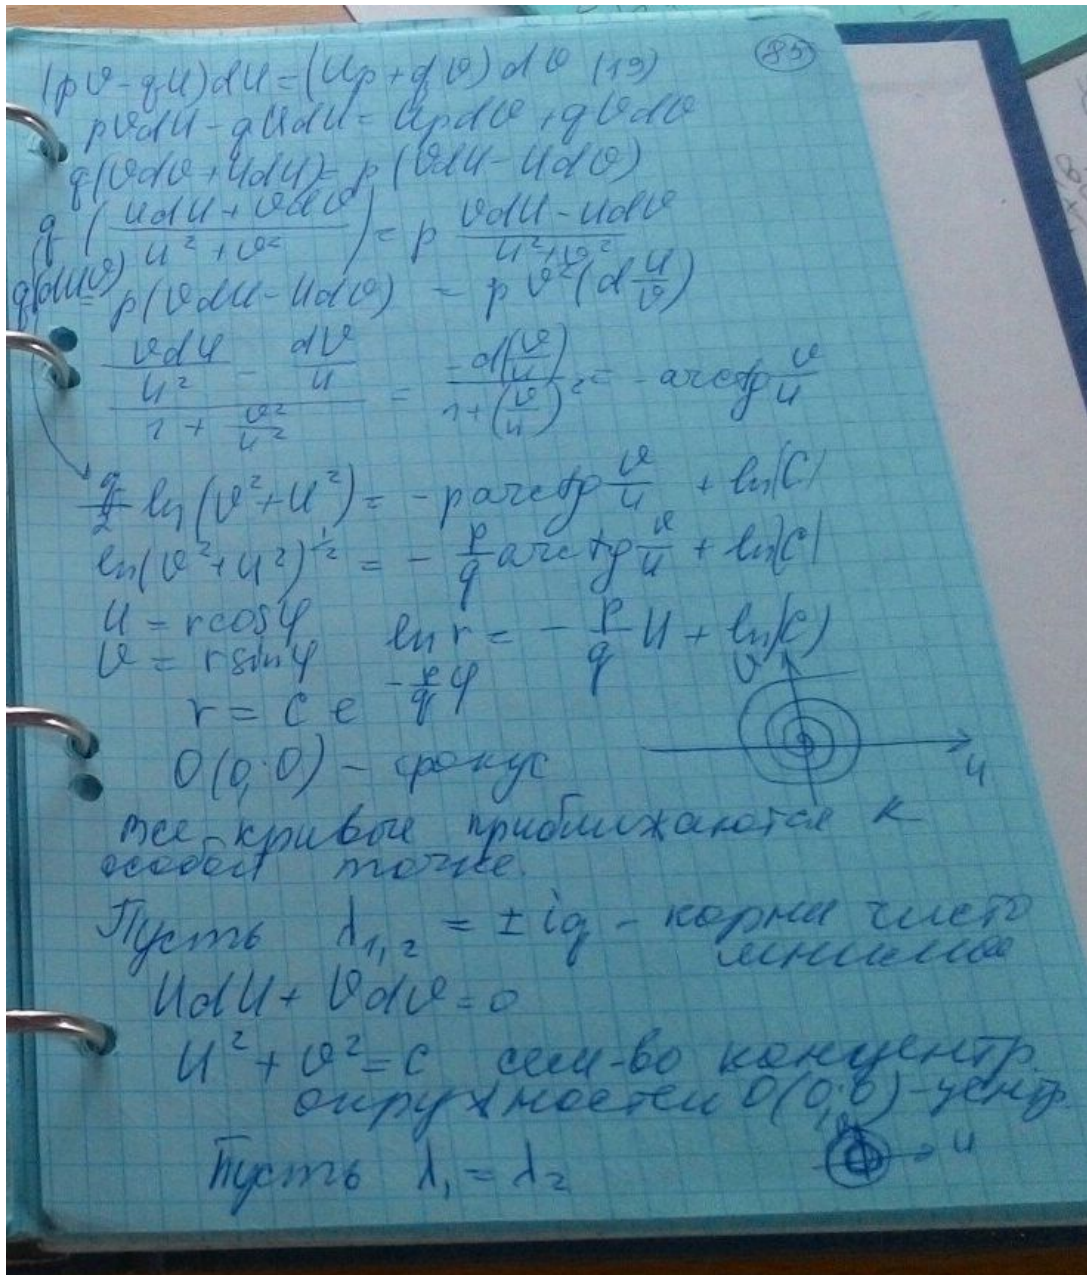 85
(pv - qu)du = (up + qv)dv (19)
pvdu - qudu = updv + qvdv
q(vdv + udu) = p(vdu - udv)
q((udu + vdv)/(u² + v²)) = p (vdu - udv)/(u² + v²)
q(duv) = p(vdu - udv) = p v²(d u/v)
(vdu/u² - dv/u)/(1 + v²/u²) = -d(v/u)/(1 + (v/u)²) = -arctg v/u
q/2 ln(v² + u²) = -p arctg v/u + ln|C|
ln(v² + u²)^(1/2) = - p/q arctg v/u + ln|C|
u = r cosφ
v = r sinφ
ln r = - p/q u + ln|C)
r = c e^(-p/q φ)
v
u
O(0,0) - фокус
все кривые приближаются к
особой точке.
Пусть λ1,2 = ± iq - корни чисто
мнимые
udu + vdv = 0
u² + v² = c сем-во концентр.
окружностей O(0,0) - центр
u
Пусть λ1 = λ2